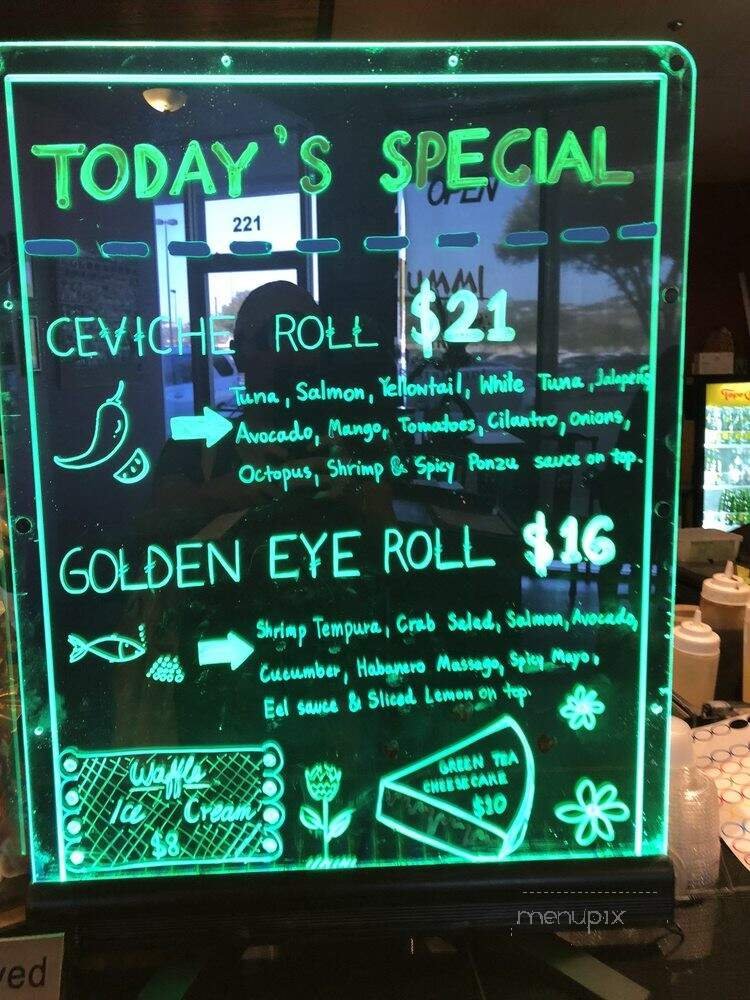 TODAY'S SPECIAL
OPEN
221
CEVICHE ROLL $21
Tuna, Salmon, Yellowtail, White Tuna, Jalapeño
Avocado, Mango, Tomatoes, Cilantro, Onions,
Octopus, Shrimp & Spicy Ponzu sauce on top.
GOLDEN EYE ROLL $16
Shrimp Tempura, Crab Salad, Salmon, Avocado,
Cucumber, Habanero Massago, Spicy Mayo,
Eel sauce & Sliced Lemon on top.
Waffle
Ice Cream
$8
GREEN TEA
CHEESECAKE
$10
menupix
ved